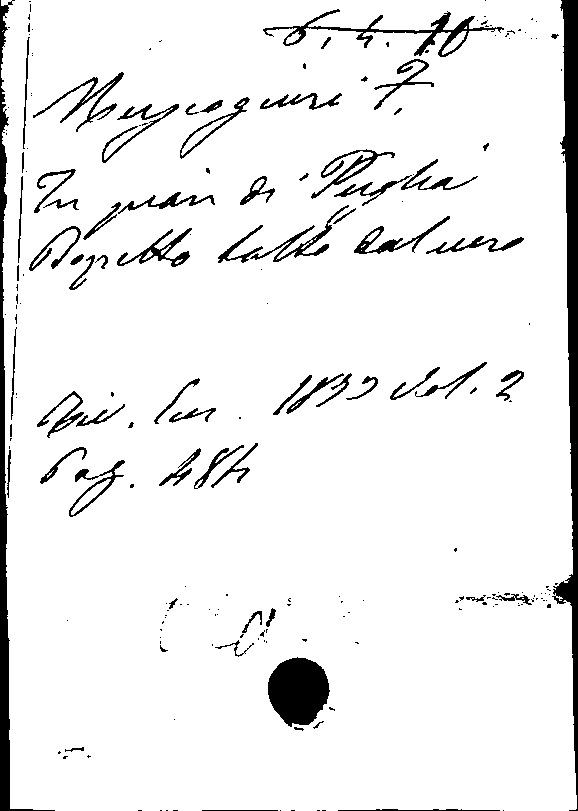 6. 4. 10
F.
In giari di Puglia
Bozzetto tolto dal vero
Riv. Eur. 1877 Vol. 2
Pag. 484